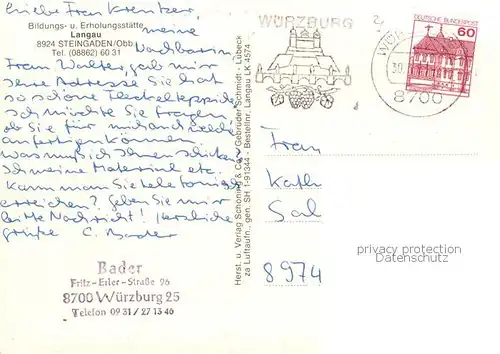 Liebe Frau Kreutzer
Bildungs- u. Erholungsstätte
Langau
8924 STEINGADEN/Obb.
Tel. (08862) 60 31
meine
Nachbarin
Frau Walter gab mir
Ihre Adresse Sie hat
so schöne Fleckelteppiche
Ich möchte Sie fragen
ob Sie für mich auch welche
anfertigen können
was muß ich Ihnen schicken
Ich meine Material etc.
Kann man Sie telefonisch
erreichen? Geben Sie mir
bitte Nachricht! Herzliche
Grüße C. Bader
Bader
Fritz-Erler-Straße 96
8700 Würzburg 25
Telefon 09 31 / 27 13 46
Herst. u. Verlag Schöning & Co + Gebrüder Schmidt - Lübeck
za Luftaufn., gen. SH 1-91344 - Bestellnr. Langau LK 4574
WÜRZBURG
30.
8700
DEUTSCHE BUNDESPOST
60
Frau
Kath
Sal
8974
privacy protection
Datenschutz